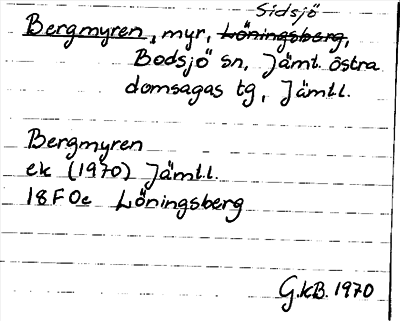 Sidsjö
Bergmyren, myr, Löningsberg,
Bodsjö sn, Jämt. östra
domsagas tg, Jämtl.
Bergmyren
ek (1970) Jämtl.
18F0e Löningsberg
G.kB. 1970